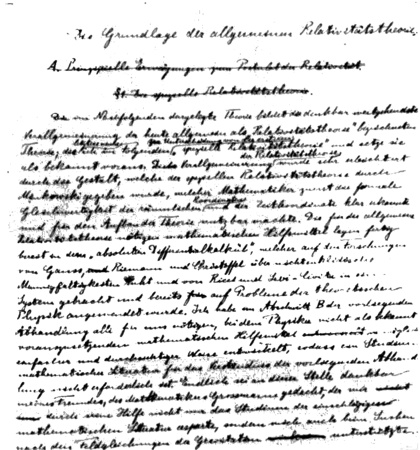 Die Grundlage der allgemeinen Relativitätstheorie.
A. Prinzipielle Erwägungen zum Postulat der Relativität.
§1. Die spezielle Relativitätstheorie.
Die im Nachfolgenden dargelegte Theorie bildet die denkbar weitgehendste
Verallgemeinerung der heute allgemein als "Relativitätstheorie" bezeichneten
Theorie; die letztere im folgenden "spezielle Relativitätstheorie" und setze sie
als bekannt voraus. Die Verallgemeinerung der Relativitätstheorie wurde sehr erleichtert
durch die Gestalt, welche der speziellen Relativitätstheorie durch
Minkowski gegeben wurde, welcher Mathematiker zuerst die formale
Gleichwertigkeit der räumlichen Koordinaten und der Zeitkoordinate klar erkannte
und für den Aufbau der Theorie nutzbar machte. Die für die allgemeine
Relativitätstheorie nötigen mathematischen Hilfsmittel lagen fertig
bereit in dem "absoluten Differentialkalkül", welcher auf den Forschungen
von Gauss, und Riemann und Christoffel über nichteuklidische
Mannigfaltigkeiten ruht und von Ricci und Levi-Civita in ein
System gebracht und bereits auf Probleme der theoretischen
Physik angewendet wurde. Ich habe im Abschnitt B der vorliegenden
Abhandlung alle für uns nötigen, bei dem Physiker nicht als bekannt
vorauszusetzenden mathematischen Hilfsmittel in möglichst
einfacher und durchsichtiger Weise entwickelt, sodass ein Studium
mathematischer Literatur für das Verständnis der vorliegenden Abhand-
lung nicht erforderlich ist. Endlich sei an dieser Stelle dankbar
meines Freundes, des Mathematikers Grossmann gedacht, der mir
durch seine Hilfe nicht nur das Studium der einschlägigen
mathematischen Literatur ersparte, sondern mich auch beim Suchen
nach den Feldgleichungen der Gravitation unterstützte.